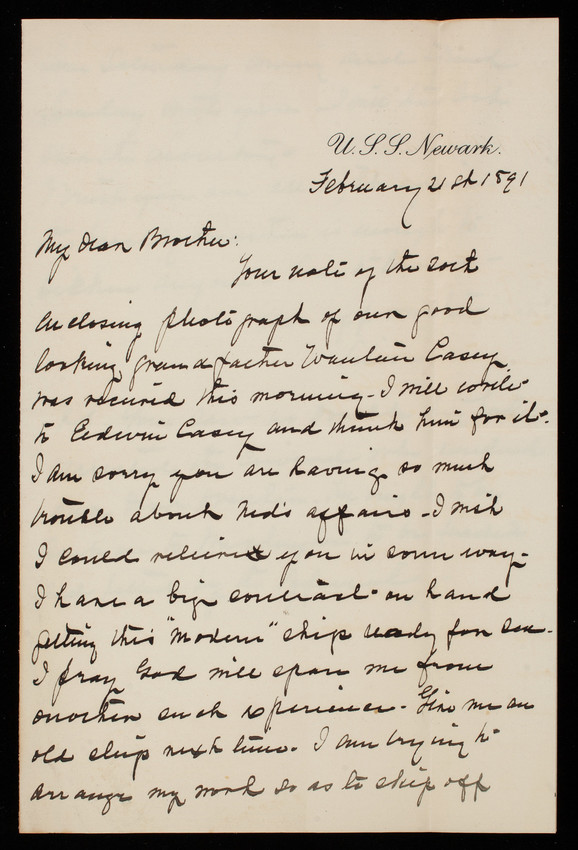 U.S.S. Newark.
February 21st 1891
My dear Brother:
Your note of the
enclosing photograph of our good
looking grandfather Wanton Casey
was received this morning - I will write
to Edwin Casey and thank him for it -
I am sorry you are having so much
trouble about Ned's affairs - I wish
I could relieve you in some way -
I have a big contract on hand
getting this "modern" ship ready for sea -
I pray God will spare me from
another such experience - Give me an
old ship next time. I am trying to
arrange my work so as to slip off